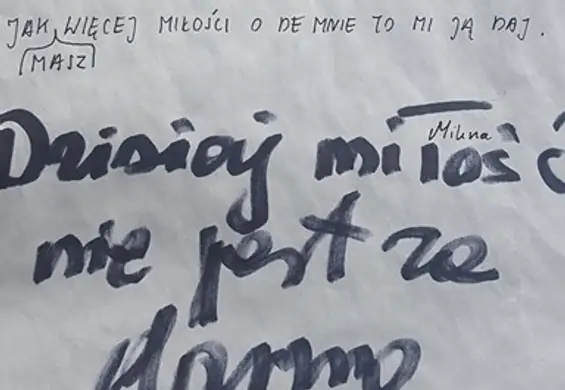 JAK WIĘCEJ MIŁOŚCI O DE MNIE TO MI JĄ DAJ.
MASZ
Dzisiaj miłość
Milena
nie jest za
darmo